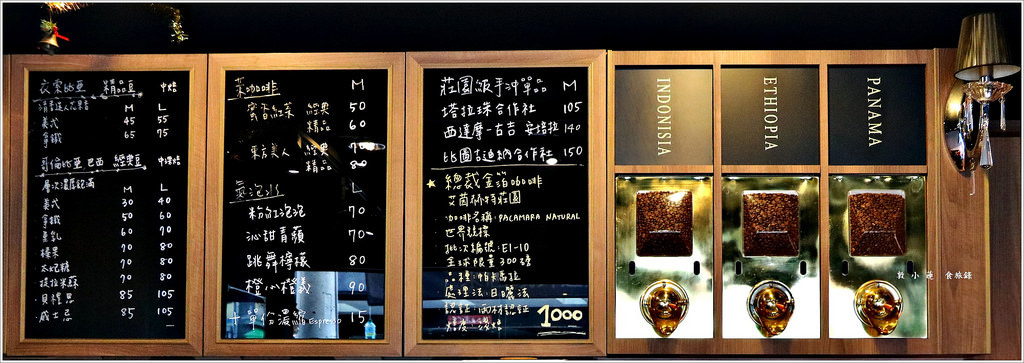 衣索比亞 精品豆 中焙
M L
美式 45 55
拿鐵 65 75
哥倫比亞 巴西 經典豆 中深焙
層次濃厚飽滿
M L
美式 30 40
拿鐵 50 60
豆乳 60 70
榛果 70 80
太妃糖 70 80
提拉米蘇 70 80
貝禮思 85 105
威士忌 85 105
茶咖啡 M
蜜香紅茶 經典 50
精品 60
東方美人 經典 70
精品 80
氣泡冰 L
粉紅泡泡 70
沁甜青蘋 70
跳舞檸檬 80
橙心橙義 90
十單份濃縮 Espresso 15
莊園級手沖單品 M
塔拉珠合作社 105
西達摩-古吉 140
比圖吉迪納合作社 150
★總裁金箔咖啡
艾茵赫特莊園
咖啡名稱:PACAMARA NATURAL
世界競標
批次編號:E1-10
全球限量300磅
品種:帕卡馬拉
處理法:日曬法
認證:雨林認證
1000
INDONISIA
ETHIOPIA
PANAMA
敦小蓮 食旅錄